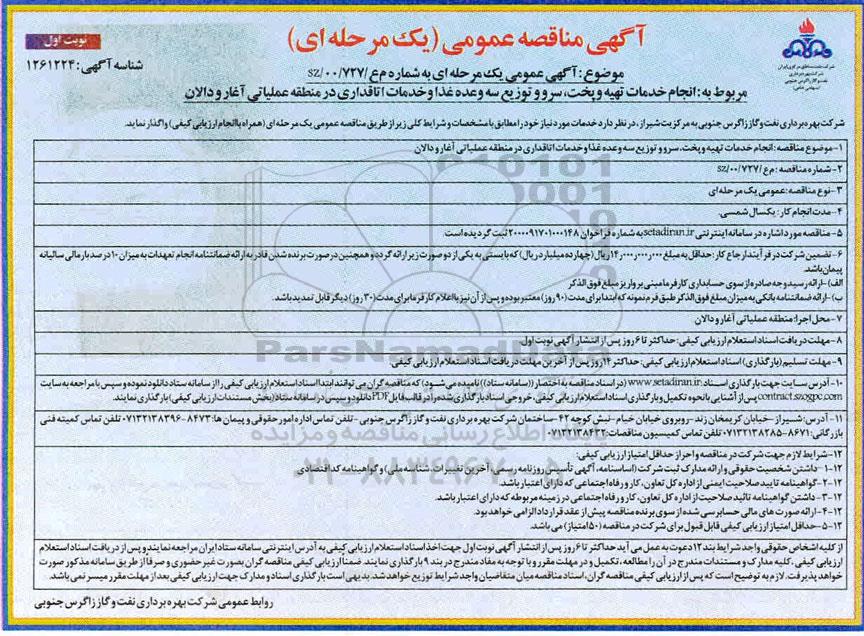 آگهی مناقصه عمومی (یک مرحله ای)
نوبت اول
شناسه آگهی: ۱۲۶۱۲۲۴
موضوع: آگهی عمومی یک مرحله ای به شماره م ع/sz/۰۰/۷۲۷
مربوط به: انجام خدمات تهیه و پخت، سرو و توزیع سه وعده غذا و خدمات اتاقداری در منطقه عملیاتی آغار و دالان
شرکت بهره برداری نفت و گاز زاگرس جنوبی به مرکزیت شیراز، در نظر دارد خدمات مورد نیاز خود را مطابق با مشخصات و شرایط کلی زیر از طریق مناقصه عمومی یک مرحله ای (همراه با انجام ارزیابی کیفی) واگذار نماید.
۱- موضوع مناقصه: انجام خدمات تهیه و پخت، سرو و توزیع سه وعده غذا و خدمات اتاقداری در منطقه عملیاتی آغار و دالان
۲- شماره مناقصه: م ع/sz/۰۰/۷۲۷
۳- نوع مناقصه: عمومی یک مرحله ای
۴- مدت انجام کار: یکسال شمسی.
۵- مناقصه مورد اشاره در سامانه اینترنتی setadiran.ir به شماره فراخوان ۲۰۰۰۰۹۱۷۰۱۰۰۰۱۴۸ ثبت گردیده است.
۶- تضمین شرکت در فرآیند ارجاع کار: حداقل به مبلغ ۱۴,۰۰۰,۰۰۰,۰۰۰ ریال (چهارده میلیارد ریال) که بایستی به یکی از دو صورت زیر ارائه گردد و همچنین در صورت برنده شدن قادر به ارائه ضمانتنامه انجام تعهدات به میزان ۱۰ درصد بار مالی سالیانه
پیمان باشد.
الف)- ارائه رسید وجه صادره از سوی حسابداری کارفرما مبنی بر واریز مبلغ فوق الذکر
ب)- ارائه ضمانتنامه بانکی به میزان مبلغ فوق الذکر طبق فرم نمونه که ابتدا برای مدت (۹۰ روز) معتبر بوده و پس از آن نیز با اعلام کارفرما برای مدت (۳۰ روز) دیگر قابل تمدید باشد.
۷- محل اجرا: منطقه عملیاتی آغار و دالان
۸- مهلت دریافت اسناد استعلام ارزیابی کیفی: حداکثر تا ۶ روز پس از انتشار آگهی نوبت اول
۹- مهلت تسلیم (بارگذاری) اسناد استعلام ارزیابی کیفی: حداکثر ۱۴ روز پس از آخرین مهلت دریافت اسناد استعلام ارزیابی کیفی.
۱۰- آدرس سایت جهت بارگذاری اسناد: www.setadiran.ir (در اسناد مناقصه به اختصار ((سامانه ستاد)) نامیده می شود) که مناقصه گران می توانند ابتدا اسناد استعلام ارزیابی کیفی را از سامانه ستاد دانلود نموده و سپس با مراجعه به سایت
contract.szogpc.com پس از آشنایی با نحوه تکمیل و بارگذاری اسناد استعلام ارزیابی کیفی، خروجی اسناد بارگذاری شده را در قالب فایل PDF دانلود و سپس در سامانه ستاد (بخش مستندات ارزیابی کیفی) بارگذاری نمایند.
۱۱- آدرس: شیراز- خیابان کریمخان زند- روبروی خیابان خیام- نبش کوچه ۴۲- ساختمان شرکت بهره برداری نفت و گاز زاگرس جنوبی- تلفن تماس اداره امور حقوقی و پیمان ها: ۸۴۷۳-۰۷۱۳۲۱۳۸۳۹۶ تلفن تماس کمیته فنی
بازرگانی: ۸۶۷۱-۰۷۱۳۲۱۳۸۲۸۵ تلفن تماس کمیسیون مناقصات: ۰۷۱۳۲۱۳۸۴۳۲
۱۲- شرایط لازم جهت شرکت در مناقصه و احراز حداقل امتیاز ارزیابی کیفی:
۱-۱۲- داشتن شخصیت حقوقی و ارائه مدارک ثبت شرکت (اساسنامه، آگهی تأسیس روزنامه رسمی، آخرین تغییرات، شناسه ملی) و گواهینامه کد اقتصادی.
۲-۱۲- گواهینامه تایید صلاحیت ایمنی از اداره کل تعاون، کار و رفاه اجتماعی که دارای اعتبار باشد.
۳-۱۲- داشتن گواهینامه تائید صلاحیت از اداره کل تعاون، کار و رفاه اجتماعی در زمینه مربوطه که دارای اعتبار باشد.
۴-۱۲- ارائه صورت های مالی حسابرسی شده از سوی برنده مناقصه پیش از عقد قرارداد الزامی خواهد بود.
۵-۱۲- حداقل امتیاز ارزیابی کیفی قابل قبول برای شرکت در مناقصه (۵۰ امتیاز) می باشد.
از کلیه اشخاص حقوقی واجد شرایط بند ۱۲ دعوت به عمل می آید حداکثر تا ۶ روز پس از انتشار آگهی نوبت اول جهت اخذ اسناد استعلام ارزیابی کیفی به آدرس اینترنتی سامانه ستاد ایران مراجعه نمایند و پس از دریافت اسناد استعلام
ارزیابی کیفی، کلیه مدارک و مستندات مندرج در آن را مطالعه، تکمیل و در مهلت مقرر و با توجه به مفاد مندرج در بند ۹ بارگذاری نمایند. ضمناً ارزیابی کیفی مناقصه گران بصورت غیر حضوری و صرفاً از طریق سامانه مذکور صورت
خواهد پذیرفت. لازم به توضیح است که پس از ارزیابی کیفی مناقصه گران، اسناد مناقصه میان متقاضیان واجد شرایط توزیع خواهد شد. بدیهی است بارگذاری اسناد و مدارک جهت ارزیابی کیفی بعد از مهلت مقرر میسر نمی باشد.
روابط عمومی شرکت بهره برداری نفت و گاز زاگرس جنوبی
ParsNamadData
پایگاه اطلاع رسانی مناقصه و مزایده